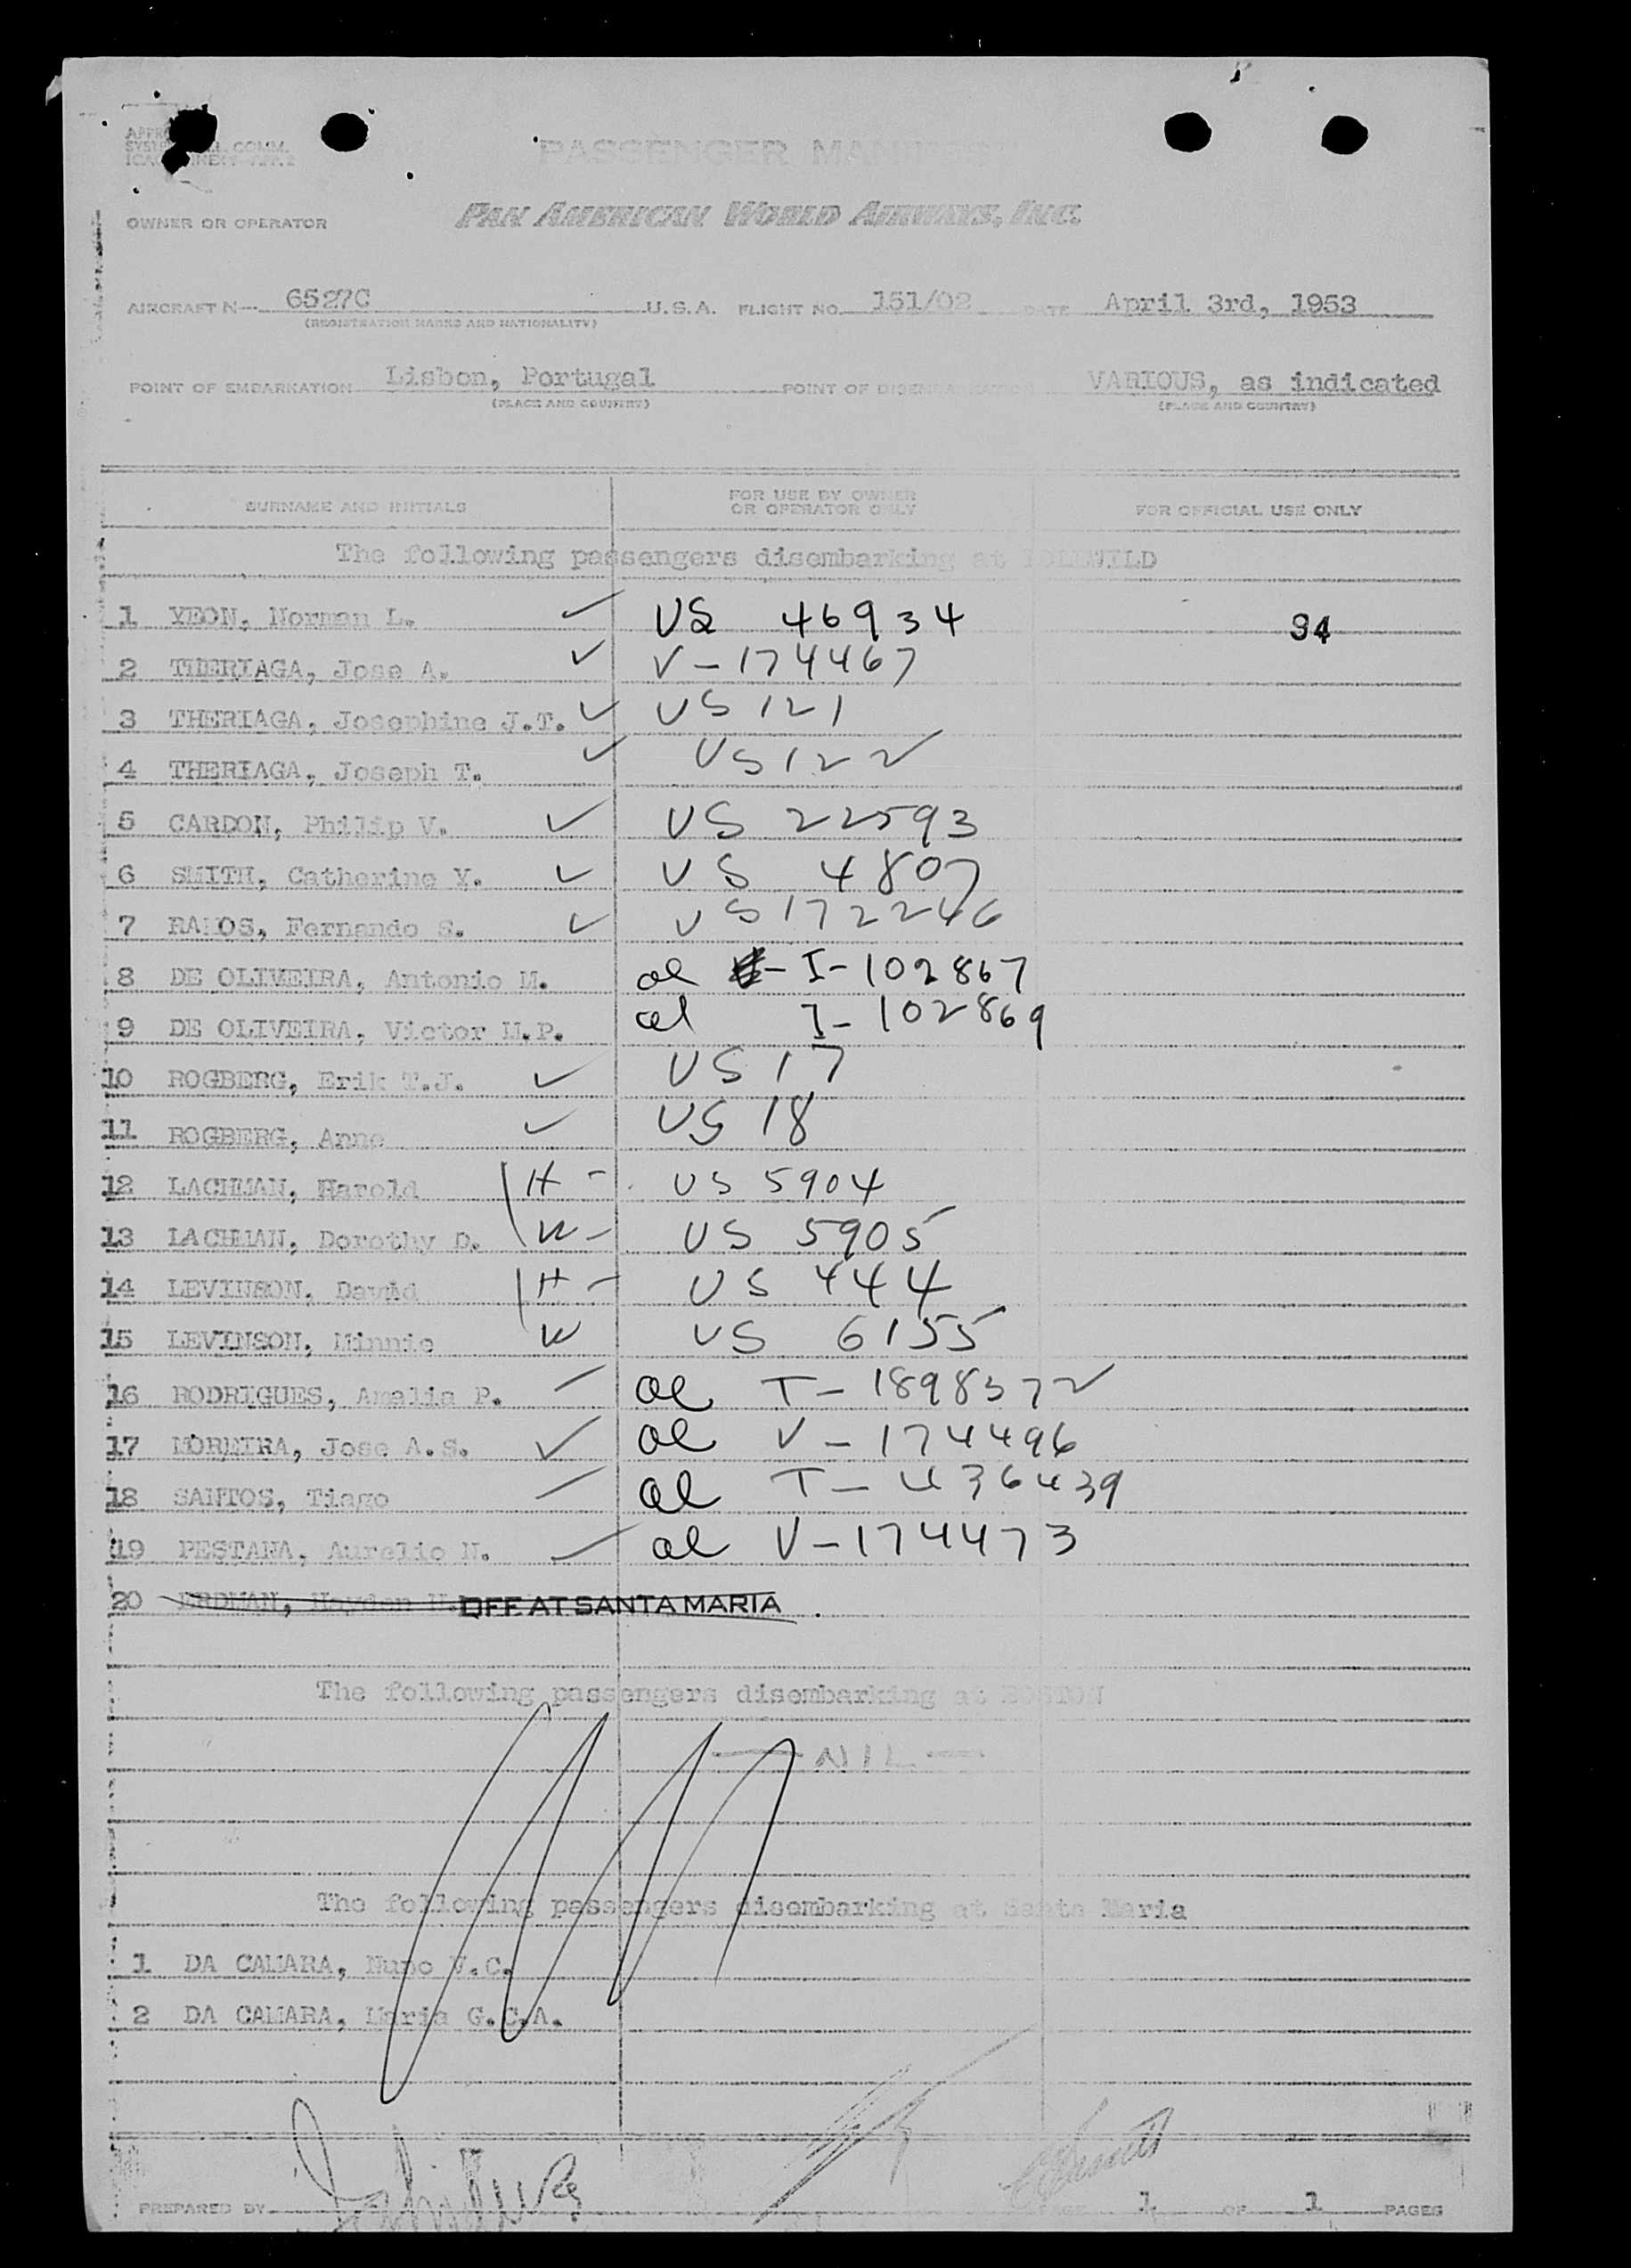 PASSENGER MANIFEST
OWNER OR OPERATOR PAN AMERICAN WORLD AIRWAYS, INC.
AIRCRAFT N— 6527C U.S.A. FLIGHT NO. 151/02 DATE April 3rd, 1953
(REGISTRATION MARKS AND NATIONALITY)
POINT OF EMBARKATION Lisbon, Portugal POINT OF DISEMBARKATION VARIOUS, as indicated
(PLACE AND COUNTRY) (PLACE AND COUNTRY)
SURNAME AND INITIALS FOR USE BY OWNER OR OPERATOR ONLY FOR OFFICIAL USE ONLY
The following passengers disembarking at IDLEWILD
1 YEON, Norman L. ✓ US 46934 94
2 THERIAGA, Jose A. ✓ V-174467
3 THERIAGA, Josephine J.T. ✓ US 121
4 THERIAGA, Joseph T. ✓ US 122
5 CARDON, Philip V. ✓ US 22593
6 SMITH, Catherine Y. ✓ US 4807
7 RAMOS, Fernando S. ✓ US 172246
8 DE OLIVEIRA, Antonio M. al I-102867
9 DE OLIVEIRA, Victor M.P. al I-102869
10 ROGBERG, Erik T.J. ✓ US 17
11 ROGBERG, Anne ✓ US 18
12 LACHMAN, Harold H - US 5904
13 LACHMAN, Dorothy D. W - US 5905
14 LEVINSON, David H - US 444
15 LEVINSON, Minnie W US 6155
16 RODRIGUES, Amalia P. ✓ al T-1898372
17 MOREIRA, Jose A.S. ✓ al V-174496
18 SANTOS, Tiago ✓ al T-436439
19 PESTANA, Aurelio N. ✓ al V-174473
20 ERDMAN, Hayden OFF AT SANTA MARIA
The following passengers disembarking at BOSTON
— NIL —
The following passengers disembarking at Santa Maria
1 DA CAMARA, Nuno V.C.
2 DA CAMARA, Maria G.C.A.
PREPARED BY PAGE 1 OF 1 PAGES